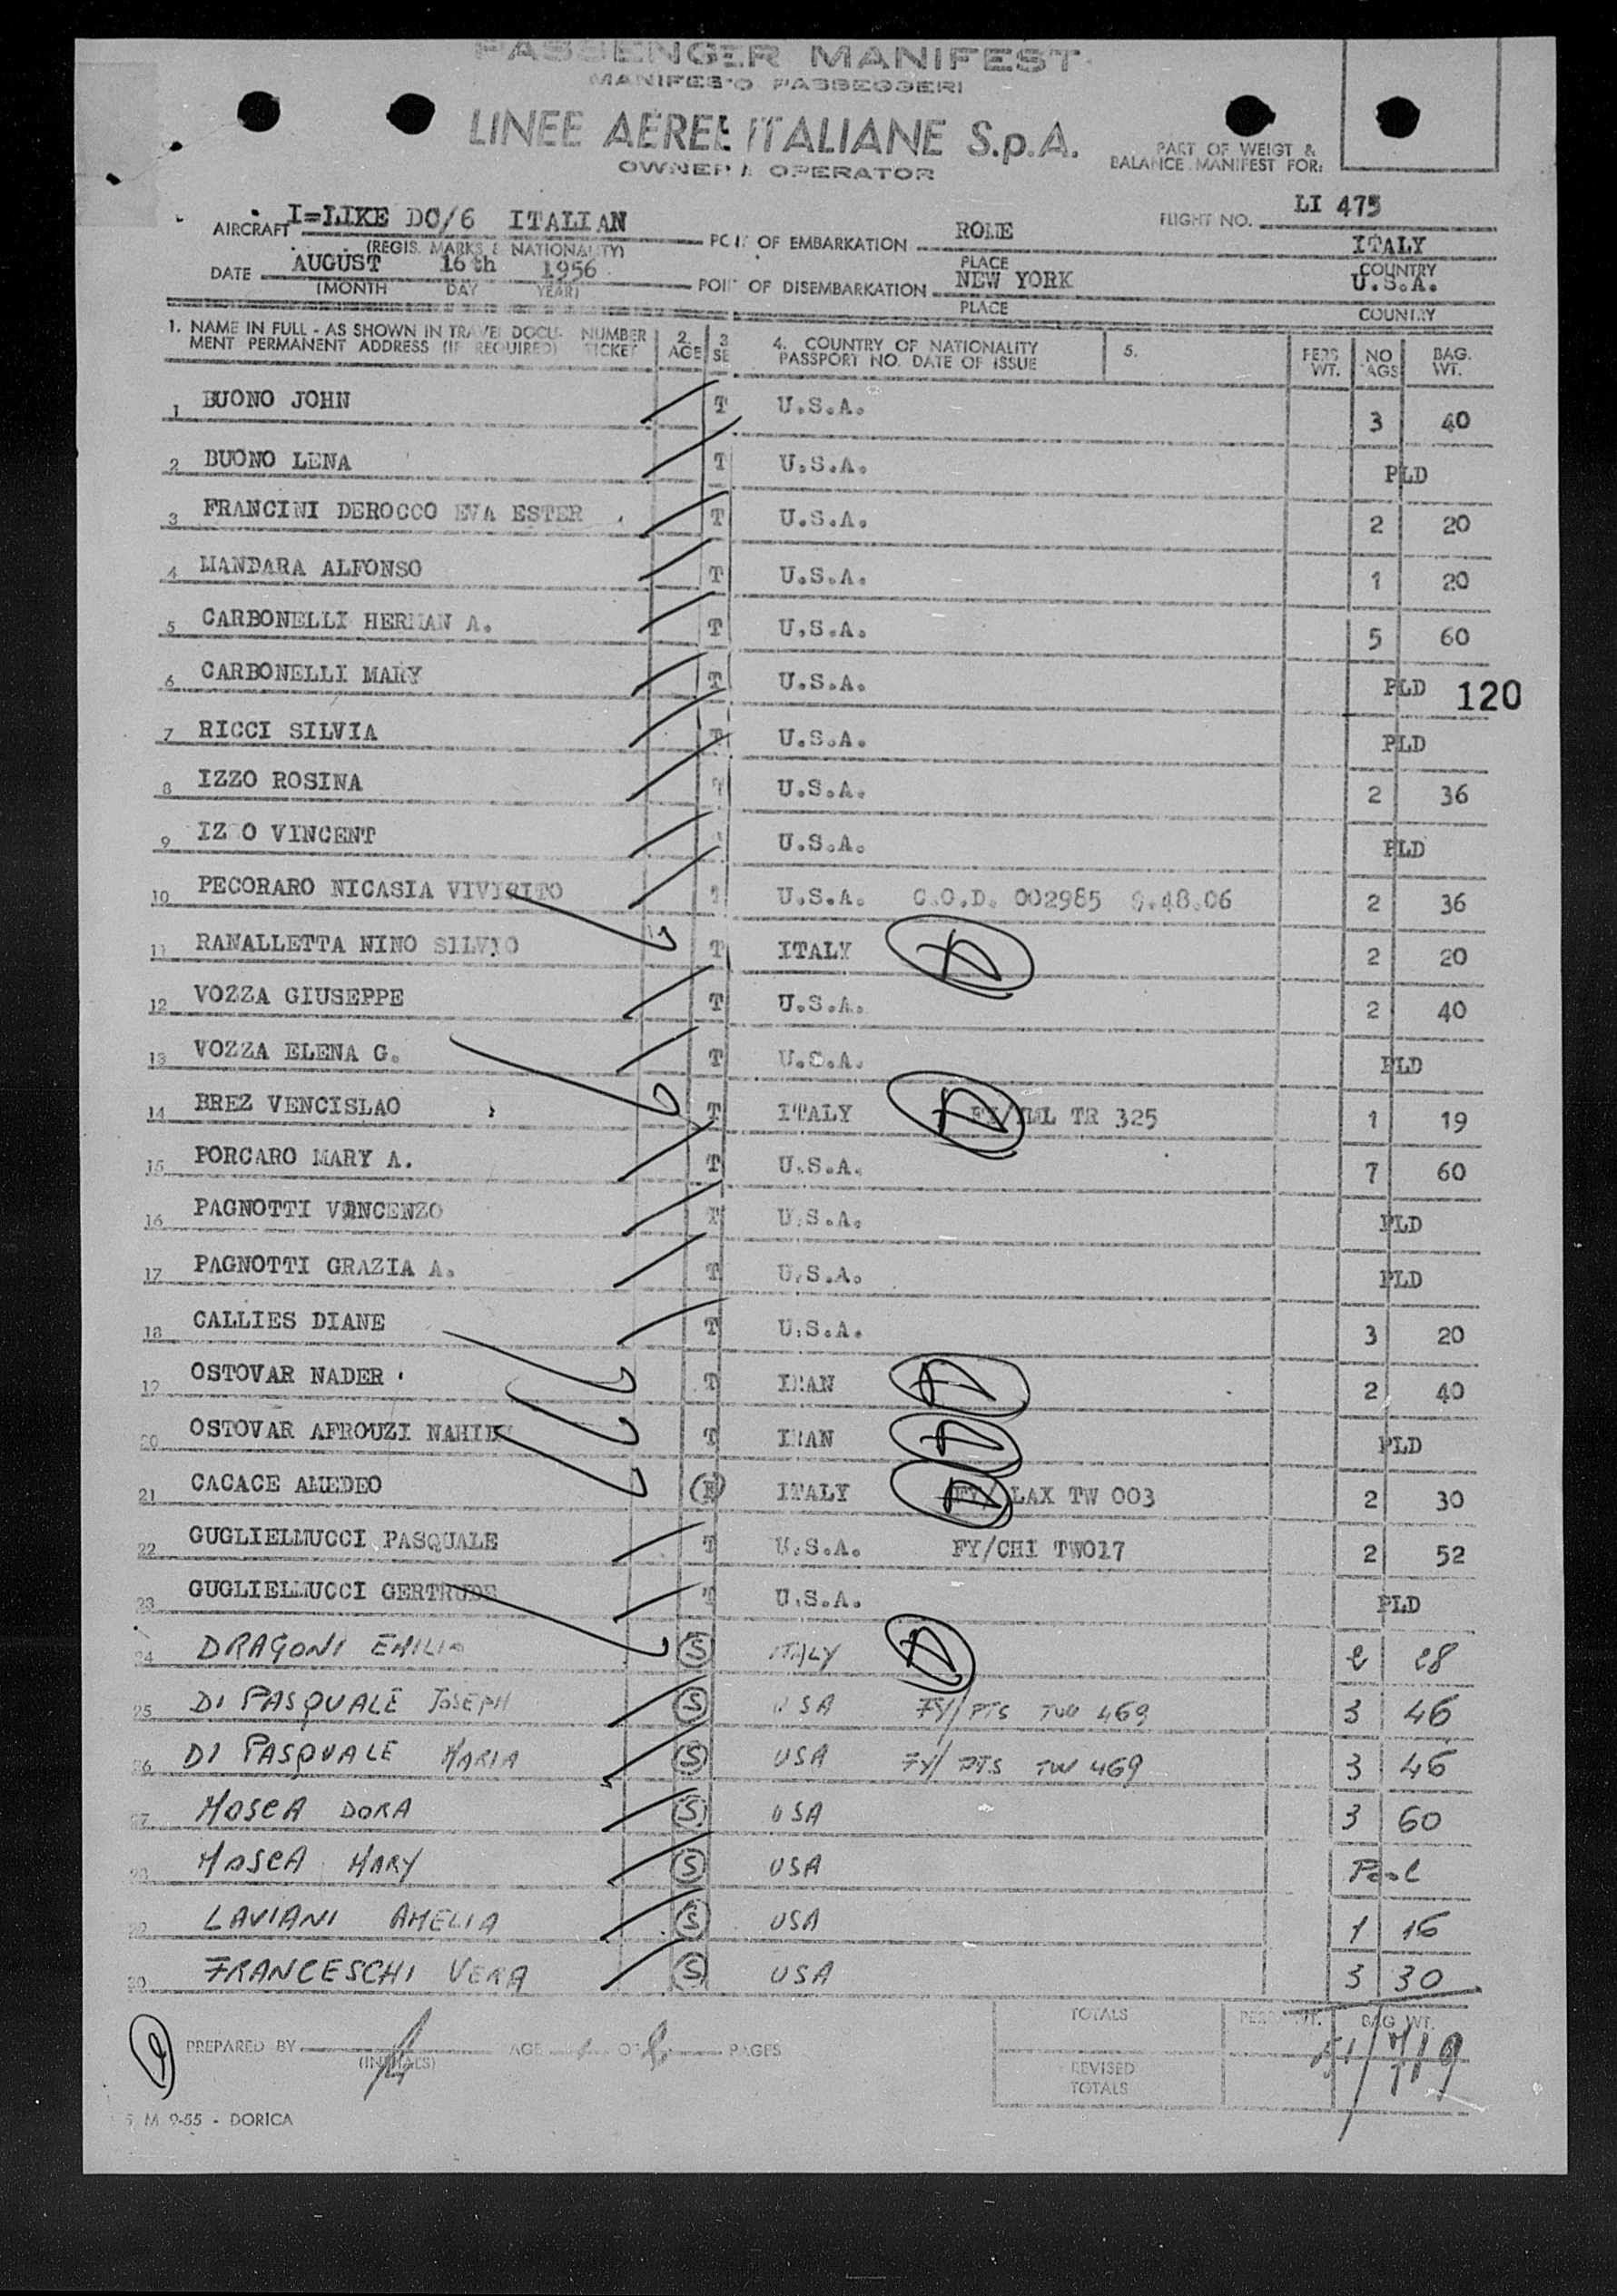 PASSENGER MANIFEST
MANIFESTO PASSEGGERI
LINEE AEREE ITALIANE S.p.A.
OWNER / OPERATOR
PART OF WEIGT &
BALANCE MANIFEST FOR:
AIRCRAFT I=LIKE DC/6 ITALIAN POINT OF EMBARKATION ROME FLIGHT NO. LI 475
(REGIS. MARKS & NATIONALITY) PLACE ITALY
DATE AUGUST 16th 1956 POINT OF DISEMBARKATION NEW YORK COUNTRY U.S.A.
(MONTH DAY YEAR) PLACE COUNTRY
1. NAME IN FULL - AS SHOWN IN TRAVEL DOCU- NUMBER 2. 3 4. COUNTRY OF NATIONALITY 5. PERS NO BAG.
MENT PERMANENT ADDRESS (IF REQUIRED) TICKET AGE SE PASSPORT NO. DATE OF ISSUE WT. AGS WT.
1 BUONO JOHN T U.S.A. 3 40
2 BUONO LENA T U.S.A. PLD
3 FRANCINI DEROCCO EVA ESTER T U.S.A. 2 20
4 MANDARA ALFONSO T U.S.A. 1 20
5 CARBONELLI HERMAN A. T U.S.A. 5 60
6 CARBONELLI MARY T U.S.A. PLD 120
7 RICCI SILVIA T U.S.A. PLD
8 IZZO ROSINA T U.S.A. 2 36
9 IZ O VINCENT U.S.A. PLD
10 PECORARO NICASIA VIVIRITO T U.S.A. C.O.D. 002985 9.48.06 2 36
11 RANALLETTA NINO SILVIO T ITALY 2 20
12 VOZZA GIUSEPPE T U.S.A. 2 40
13 VOZZA ELENA G. T U.S.A. PLD
14 BREZ VENCISLAO T ITALY TR 325 1 19
15 PORCARO MARY A. T U.S.A. 7 60
16 PAGNOTTI VINCENZO T U.S.A. PLD
17 PAGNOTTI GRAZIA A. T U.S.A. PLD
18 CALLIES DIANE T U.S.A. 3 20
19 OSTOVAR NADER T IRAN 2 40
20 OSTOVAR AFROUZI T IRAN PLD
21 CACACE AMEDEO ITALY FY/LAX TW 003 2 30
22 GUGLIELMUCCI PASQUALE T U.S.A. FY/CHI TW017 2 52
23 GUGLIELMUCCI GERTRUDE T U.S.A. PLD
24 DRAGONI EMILIO S ITALY 2 28
25 DI PASQUALE JOSEPH S USA FY/ PTS TW 469 3 46
26 DI PASQUALE MARIA S USA FY/ PTS TW 469 3 46
27 MOSCA DORA S USA 3 60
28 MOSCA MARY S USA Pool
29 LAVIANI AMELIA S USA 1 16
30 FRANCESCHI VERA S USA 3 30
TOTALS PERS. WT. BAG WT.
PREPARED BY AGE OF PAGES
(INITIALS) REVISED
TOTALS
5 M 9-55 - DORICA